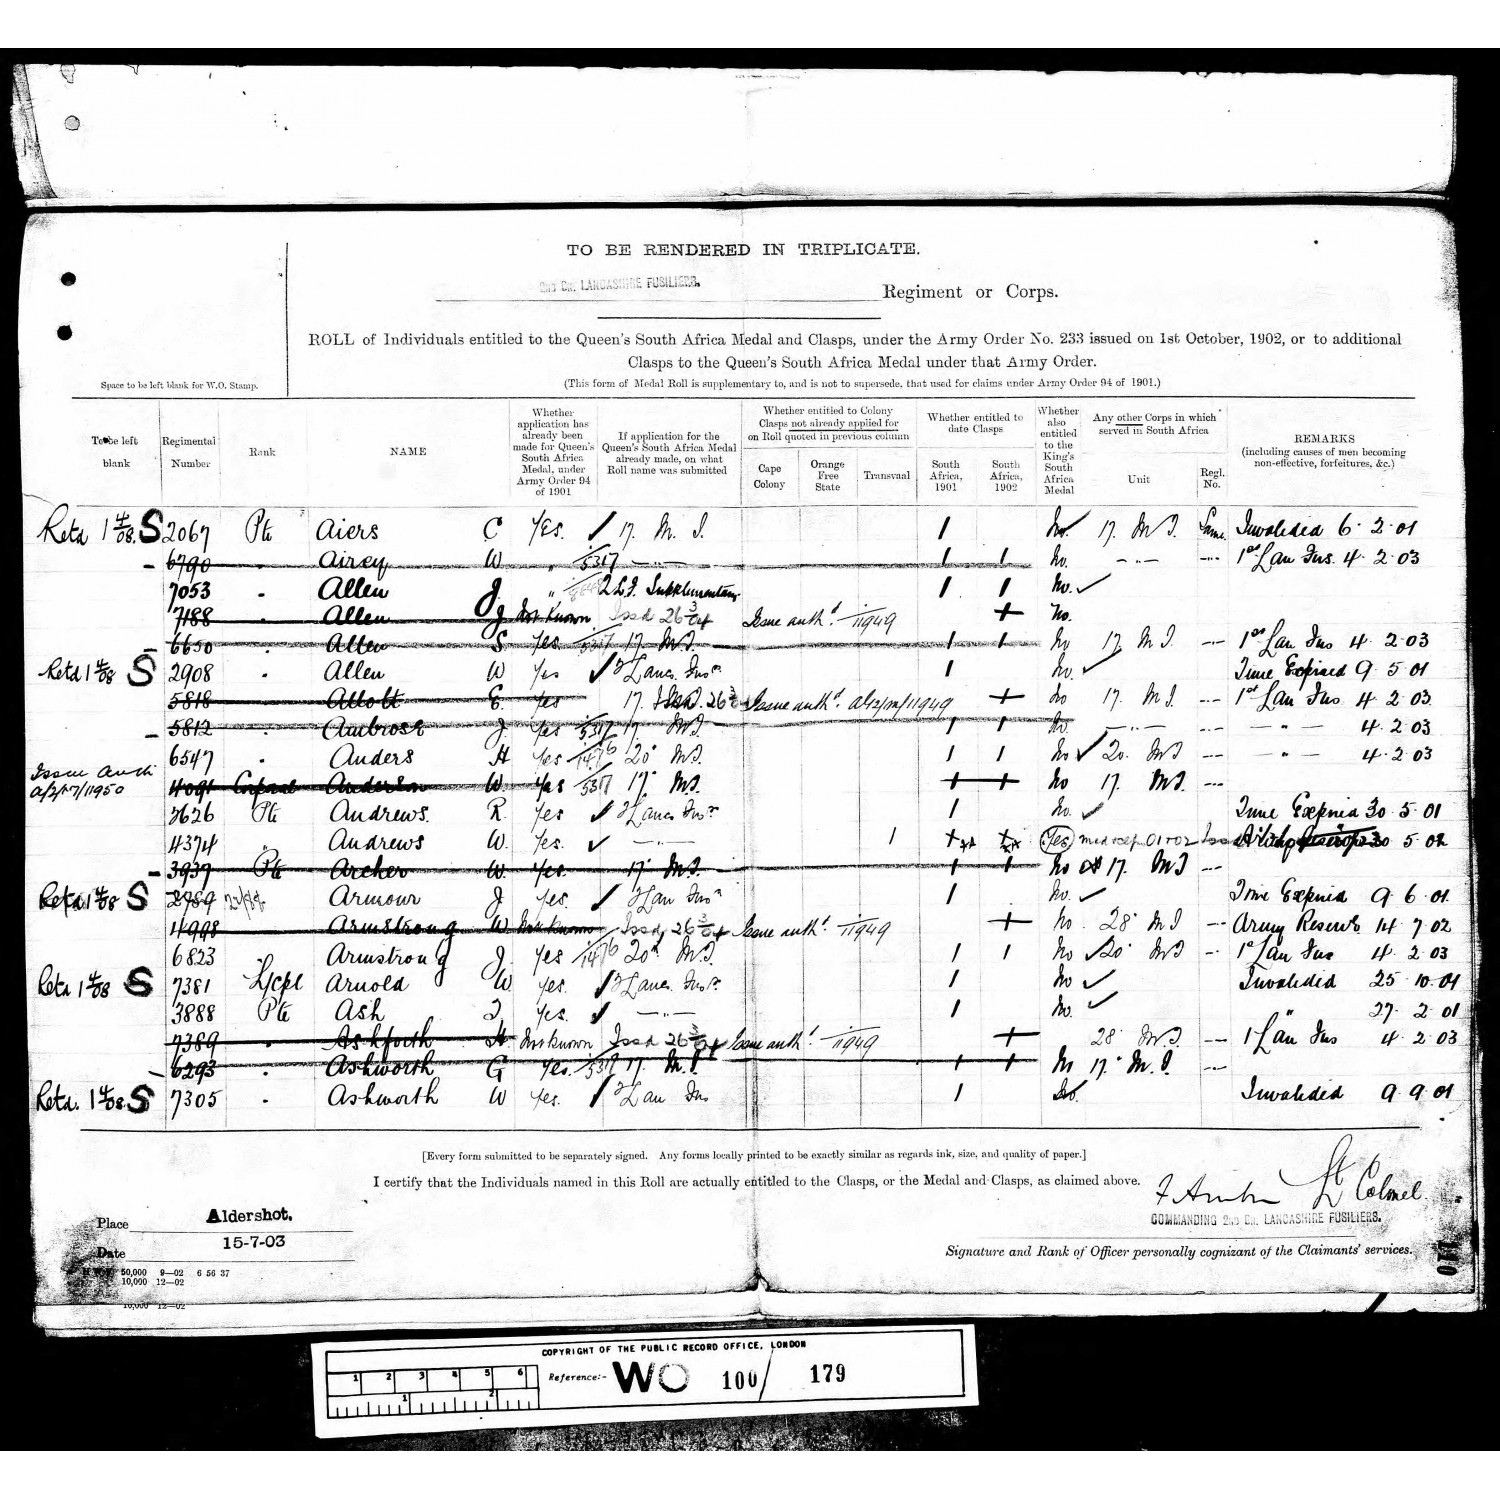 TO BE RENDERED IN TRIPLICATE.
2ND BN. LANCASHIRE FUSILIERS. Regiment or Corps.
ROLL of Individuals entitled to the Queen's South Africa Medal and Clasps, under the Army Order No. 233 issued on 1st October, 1902, or to additional
Clasps to the Queen's South Africa Medal under that Army Order.
Space to be left blank for W.O. Stamp.
(This form of Medal Roll is supplementary to, and is not to supersede, that used for claims under Army Order 94 of 1901.)
To be left blank
Regimental Number
Rank
NAME
Whether application has already been made for Queen's South Africa Medal, under Army Order 94 of 1901
If application for the Queen's South Africa Medal already made, on what Roll name was submitted
Whether entitled to Colony Clasps not already applied for on Roll quoted in previous column
Cape Colony
Orange Free State
Transvaal
Whether entitled to date Clasps
South Africa, 1901
South Africa, 1902
Whether also entitled to the King's South Africa Medal
Any other Corps in which served in South Africa
Unit
Regl. No.
REMARKS
(including causes of men becoming non-effective, forfeitures, &c.)
Retd 1 4/08. S 2067 Pte Aiers C Yes. / 17. M. I. 1 No. 17. M I. Same. Invalided 6. 2. 01
6790 " Airey W " 5317 —"— 1 1 No. —"— --- 1st Lan Fus. 4. 2. 03
7053 " Allen J. " 2 L.F. Supplementary 1 1 No. ✓
7188 " Allen J Not Known Issd 26 3/04 Issue authd. 11949 + No.
6650 " Allen S Yes. 5317 17. M I. 1 1 No 17. M I. --- 1st Lan Fus 4. 2. 03
Retd 1 4/08 S 2908 " Allen W Yes / 2 Lancs. Fusrs 1 No. ✓ Time Expired 9. 5. 01
5818 " Abbott E. Yes 17. Issd. 26 3/ Issue authd. 11949 + No 17. M I. --- 1st Lan Fus. 4. 2. 03
5812 " Ambrose J. Yes 5317 17. M I. 1 1 No. —"— --- " 4. 2. 03
6547 " Anders H Yes 1476 20 M I. 1 1 No ✓ 20. M I --- " 4. 2. 03
Issue Auth
4091 Corporal Anderson W Yes 5317 17. M I. + + No 17. M I. ---
3626 Pte Andrews. R. Yes / 2 Lancs Fusrs 1 No. ✓ Time Expired 30. 5. 01
4374 " Andrews W. Yes. ✓ —"— 1 + + Yes 5. 02
3937 Pte Archer W. Yes. 17. M I. 1 1 No 17. M I ---
Retd 1 4/08 S 2989 Armour J Yes. / 2 Lan Fusrs 1 No. ✓ Time Expired 9. 6. 01.
4998 " Armstrong W. Not Known Issd 26 3/04 Issue authd. 11949 + No. 28 M I --- Army Reserve 14. 7. 02
6823 Armstrong J. Yes 1476 20 M I. 1 1 No ✓ 20 M I --- 1st Lan Fus 4. 2. 03
Retd 1 4/08 S 7381 L/cpl Arnold W Yes. / 2 Lancs. Fusrs. 1 No ✓ Invalided 25. 10. 01
3888 Pte Ash Yes. ✓ —"— 1 No. ✓ " 27. 2. 01
7389 " Ashforth H. Not Known Issd 26 3/04 Issue authd 11949 + 28 M I. --- 1 Lan Fus 4. 2. 03
6293 " Ashworth G Yes. 5317 17. M. I. + + No 17. M. I. ---
Retd. 1 4/08. S 7305 " Ashworth W Yes. / 2 Lan Fus 1 No. Invalided 9. 9. 01
[Every form submitted to be separately signed. Any forms locally printed to be exactly similar as regards ink, size, and quality of paper.]
I certify that the Individuals named in this Roll are actually entitled to the Clasps, or the Medal and Clasps, as claimed above.
Lt Colonel
COMMANDING 2ND BN. LANCASHIRE FUSILIERS.
Place Aldershot.
Date 15-7-03
Signature and Rank of Officer personally cognizant of the Claimants' services.
50,000 9—02 6 56 37
10,000 12—02
10,000 12—02
COPYRIGHT OF THE PUBLIC RECORD OFFICE, LONDON
1 2 3 4 5 6
1 2
Reference:- WO 100/ 179